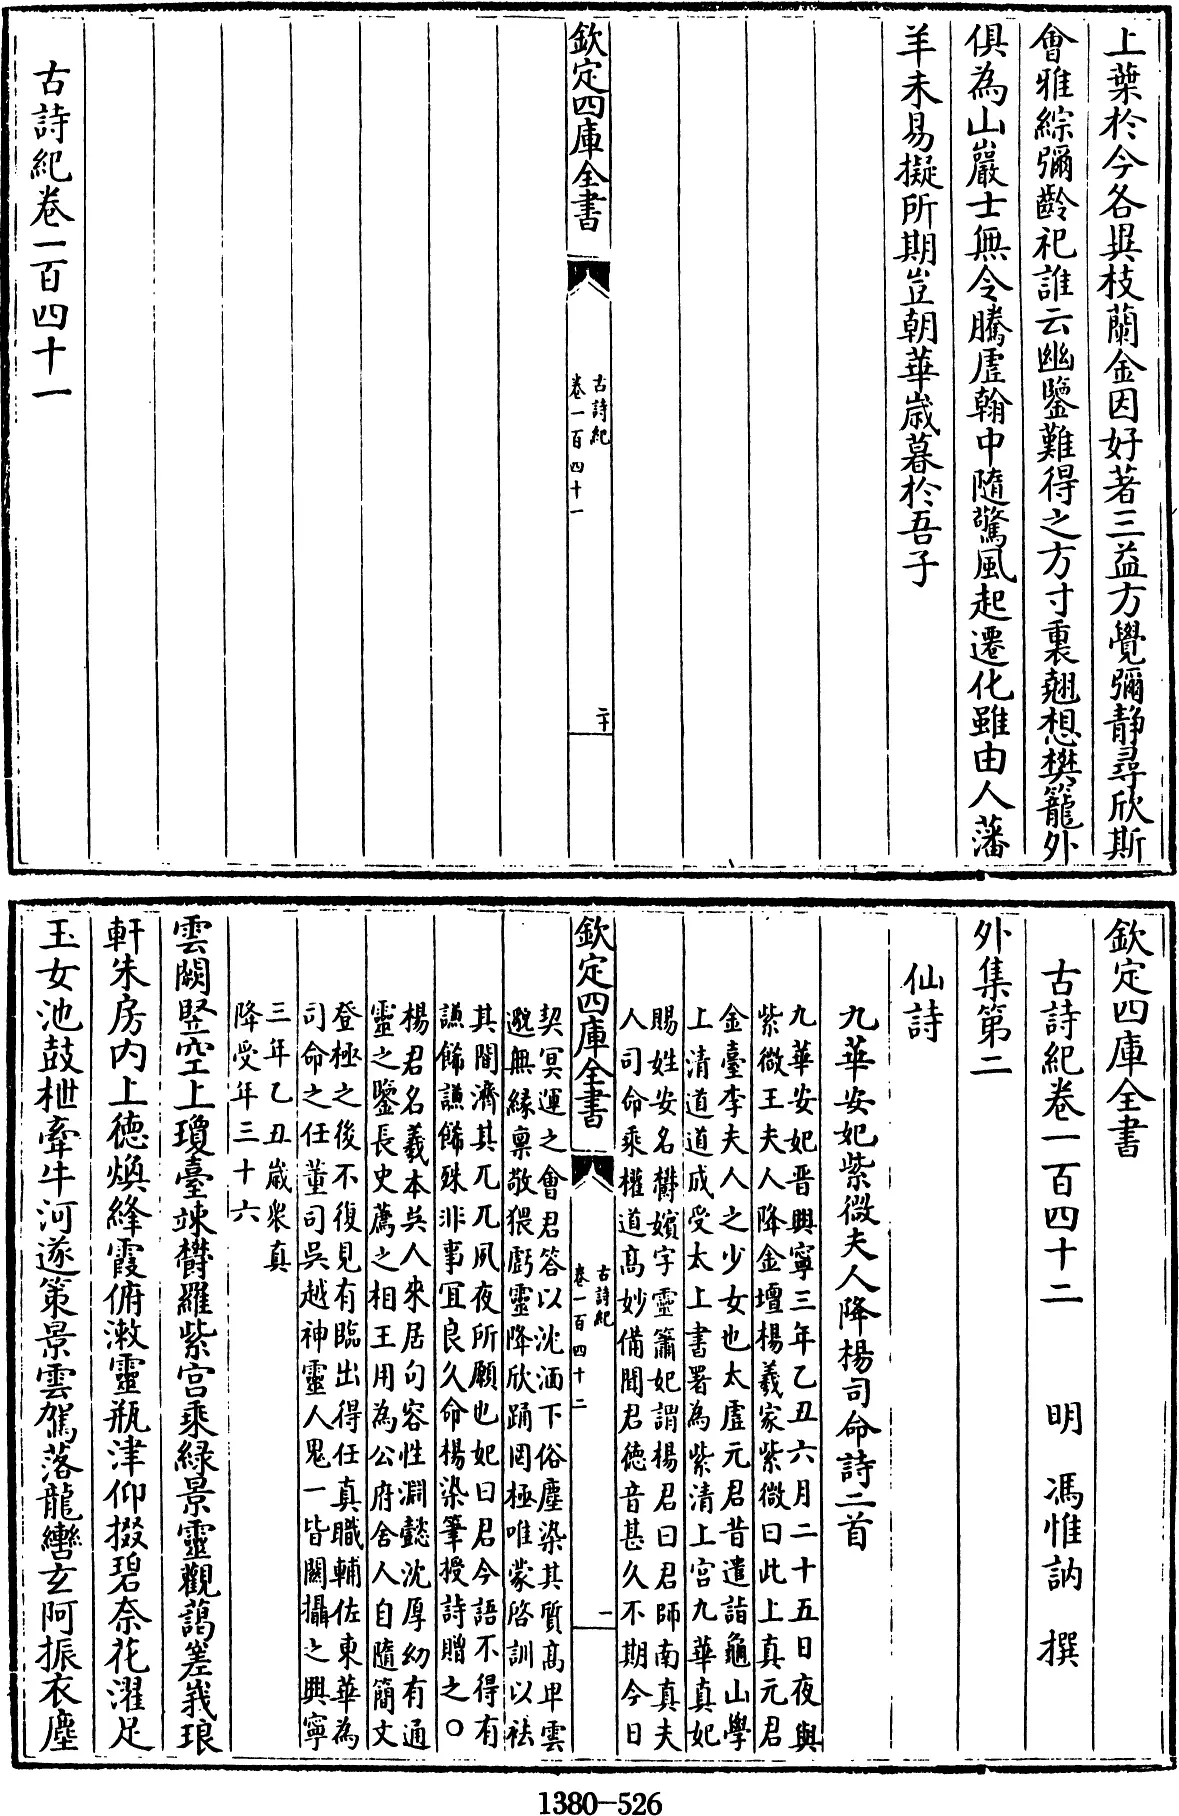 上葉於今各異枝蘭金因好著三益方覺彌静尋欣斯
會雅綜彌齡祀誰云幽鑒難得之方寸裏翹想樊籠外
俱為山巖士無令騰虛翰中隨驚風起遷化雖由人藩
羊未易擬所期豈朝華歲暮於吾子
欽定四庫全書
古詩紀
卷一百四十一
二十
古詩紀卷一百四十一
欽定四庫全書
古詩紀卷一百四十二
明 馮惟訥 撰
外集第二
仙詩
九華安妃紫微夫人降楊司命詩二首
九華安妃晋興寧三年乙丑六月二十五日夜與
紫微王夫人降金壇楊羲家紫微曰此上真元君
金臺李夫人之少女也太虛元君昔遣詣龜山學
上清道道成受太上書署為紫清上宫九華真妃
賜姓安名欝嬪字靈簫妃謂楊君曰君師南真夫
人司命乘權道髙妙備聞君徳音甚久不期今日
欽定四庫全書
古詩紀
卷一百四十二
一
契冥運之會君答以沈湎下俗塵染其質髙卑雲
邈無緣禀敬猥虧靈降欣踊罔極唯蒙啓訓以袪
其闇濟其兀兀夙夜所願也妃曰君今語不得有
謙飾謙飾殊非事宜良久命楊染筆授詩贈之〇
楊君名羲本吳人來居句容性淵懿沈厚幼有通
靈之鑒長史薦之相王用為公府舍人自隨簡文
登極之後不復見有臨出得任真職輔佐東華為
司命之任董司吳越神靈人鬼一皆關攝之興寧
三年乙丑歲衆真
降受年三十六
雲闕竪空上瓊臺竦欝羅紫宫乘緑景靈觀藹嵳峩琅
軒朱房内上徳煥絳霞俯漱靈瓶津仰掇碧奈花濯足
玉女池鼓枻牽牛河遂策景雲駕落龍轡玄阿振衣塵
1380-526